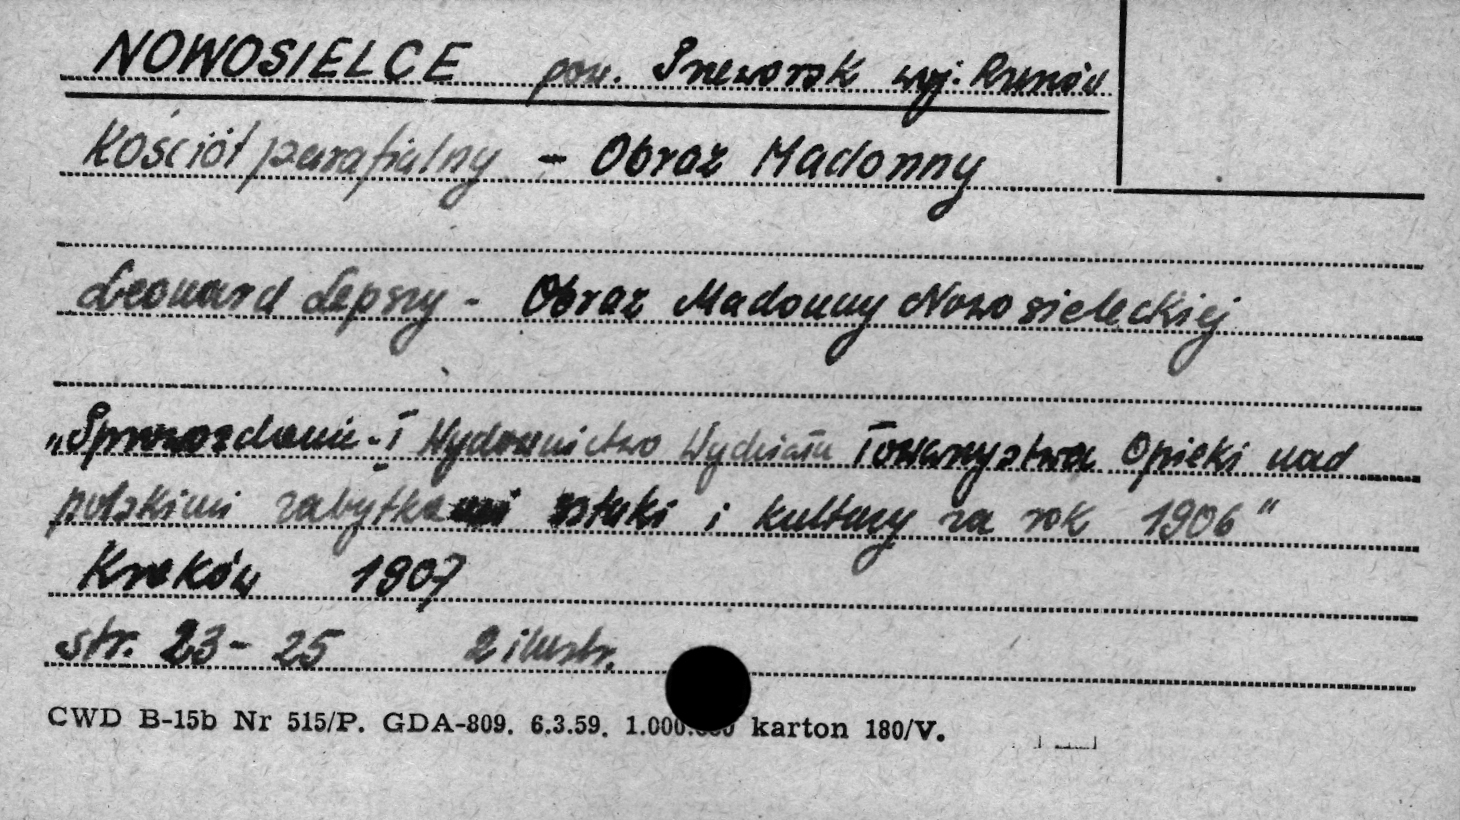 NOWOSIELCE pow. Przeworsk woj. Rzeszów
Kościół parafialny – Obraz Madonny
Leonard Lepszy – Obraz Madonny Nowosieleckiej
„Sprawozdanie - i Wydawnictwo Wydziału Towarzystwa Opieki nad
polskimi zabytkami sztuki i kultury za rok 1906"
Kraków 1907
str. 23 - 25 2 ilustr.
CWD B-15b Nr 515/P. GDA-809. 6.3.59. 1.000.000 karton 180/V.